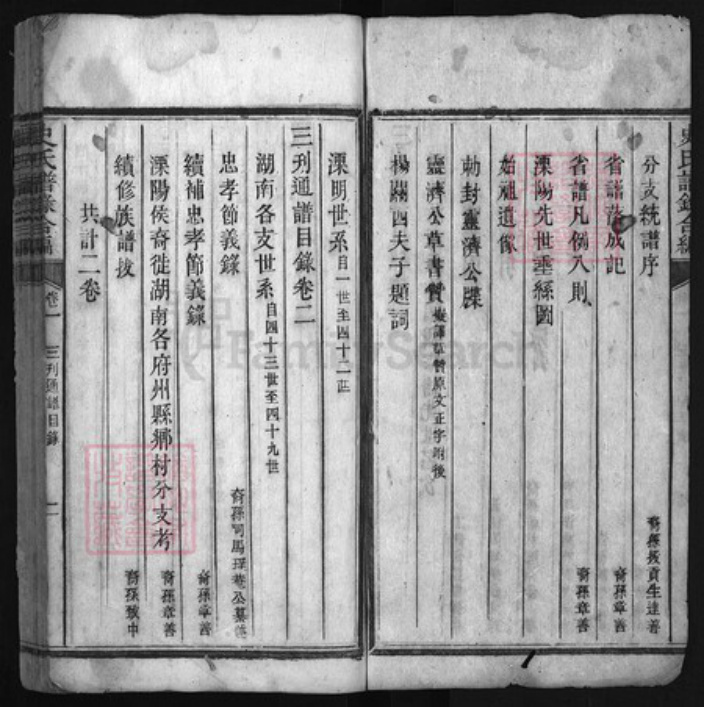 分支統譜序 裔孫拔貢生達善
省譜落成記 裔孫章善
省譜凡例八則 裔孫章善
溧陽先世垂絲圖
始祖遺像
勅封靈濟公牒
靈濟公草書贊
楊關四夫子題詞
溧明世系自一世至四十二世
三刋通譜目錄卷二
湖南各支世系自四十三世至四十九世
忠孝節義錄
續補忠孝節義錄 裔孫章善
溧陽侯裔徙湖南各府州縣鄉村分支考 裔孫章善
續修族譜拔 裔孫致中
共計二卷
史氏譜錄合編 卷一 三刋通譜目錄
FamilySearch